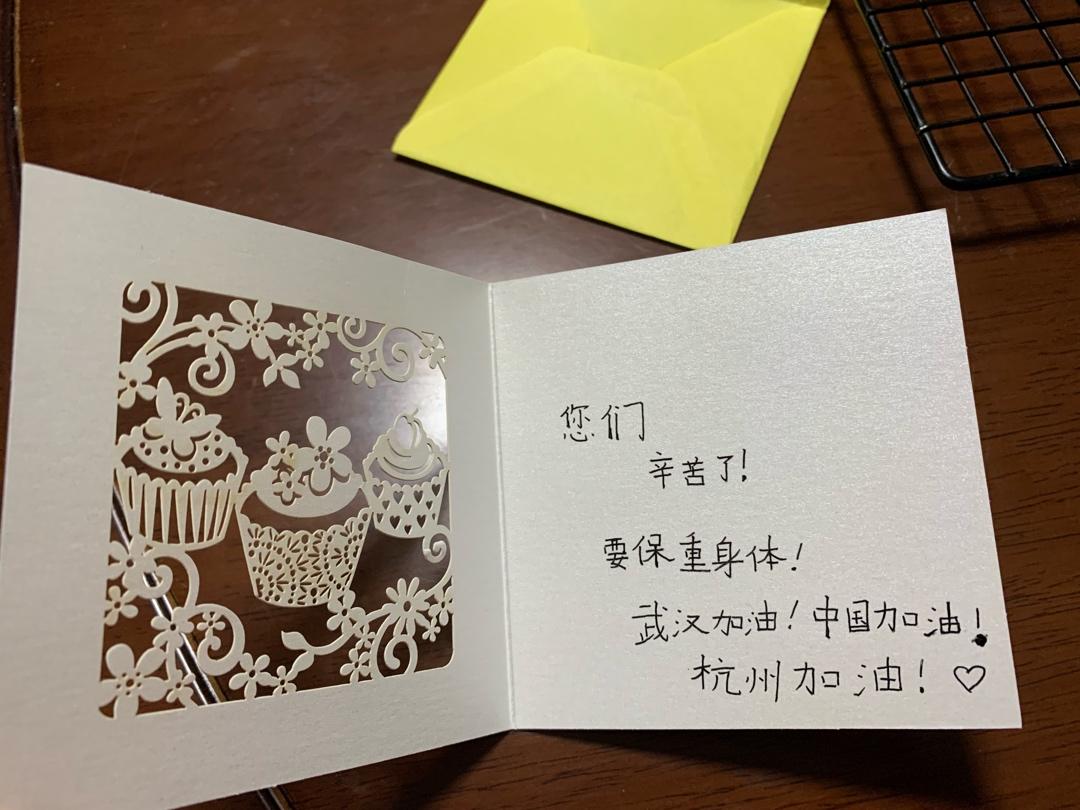 您们
辛苦了!
要保重身体!
武汉加油!中国加油!
杭州加油!♡